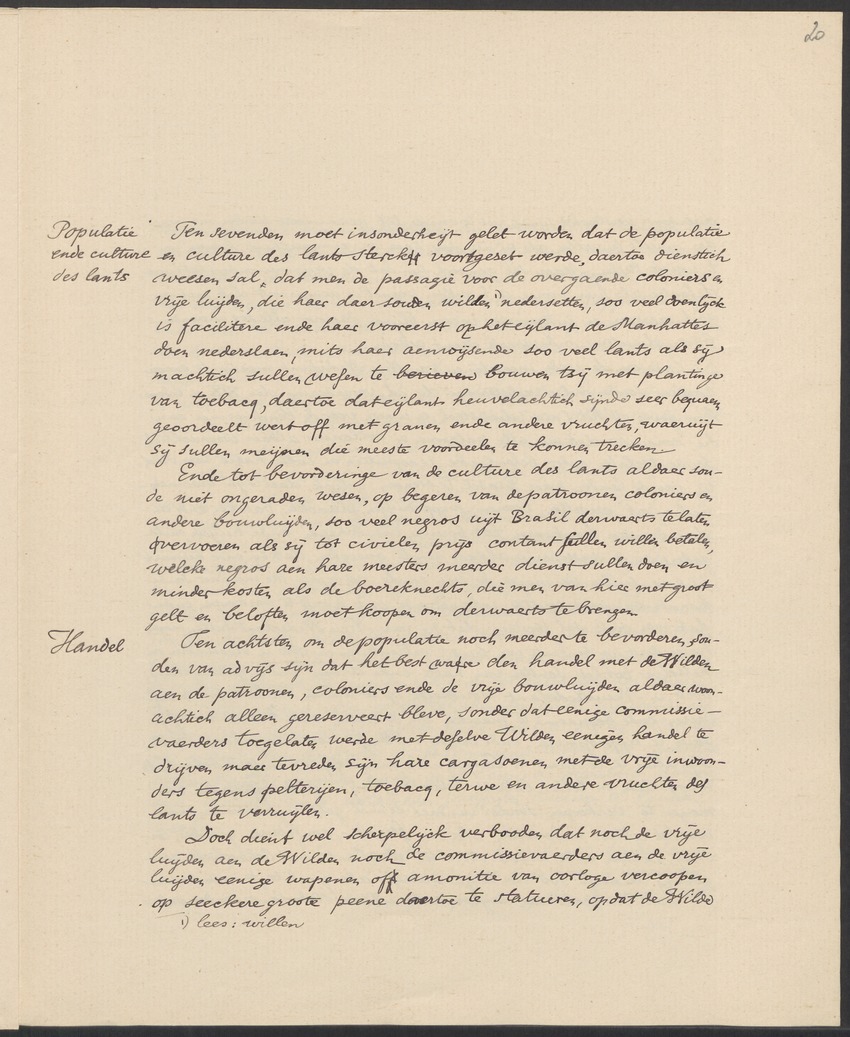 20
Populatie
ende culture
des lants
Ten sevenden moet insonderheijt gelet worden dat de populatie
en culture des lants sterckst voortgeset werde, daertoe dienstich
weesen sal, dat men de passagie voor de overgaende coloniers en
vrije luijden, die haer daer souden wilden 1) nedersetten, soo veel doenlijck
is facilitere ende haer vooreerst op het eijlant de Manhattes
doen nederslaen, mits haer aenwijsende soo veel lants als sij
machtich sullen wesen te berieven bouwen tsij met plantinge
van toebacq, daertoe dat eijlant heuvelachtich sijnde seer bequaem
geoordeelt wert off met granen ende andere vruchten, waeruijt
sij sullen meijnen die meeste voordeelen te konnen trecken
Ende tot bevorderinge van de culture des lants aldaer sou-
de niet ongeraden wesen, op begeren van de patroonen coloniers en
andere bouwluijden, soo veel negros uijt Brasil derwaerts te laten
vervoeren als sij tot civielen prijs contant sullen willen betalen,
welcke negros aen hare meesters meerder dienst sullen doen en
minder kosten als de boereknechts, die men van hier met groot
gelt en beloften moet koopen om derwaerts te brengen
Handel
Ten achtsten om de populatie noch meerder te bevorderen, sou-
den van advijs sijn dat het best ware den handel met de Wilden
aen de patroonen, coloniers ende de vrije bouwluijden aldaer woon-
achtich alleen gereserveert bleve, sonder dat eenige commissie-
vaerders toegelaten werde met deselve Wilden eenigen handel te
drijven maer tevreden sijn hare cargasoenen met de vrije inwoon-
ders tegens pelterijen, toebacq, terwe en andere vruchten des
lants te verruijlen.
Doch dient wel scherpelijck verbooden dat noch de vrije
luijden aen de Wilden noch de commissievaerders aen de vrije
luijden eenige wapenen off amonitie van oorloge vercoopen
op seeckere groote peene daertoe te statueren, opdat de Wilde
1) lees: willen